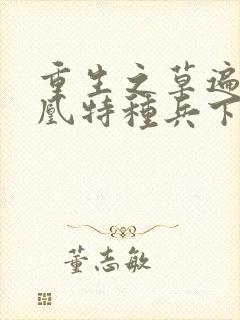 重生之草遍
凰特種兵下
董志敏